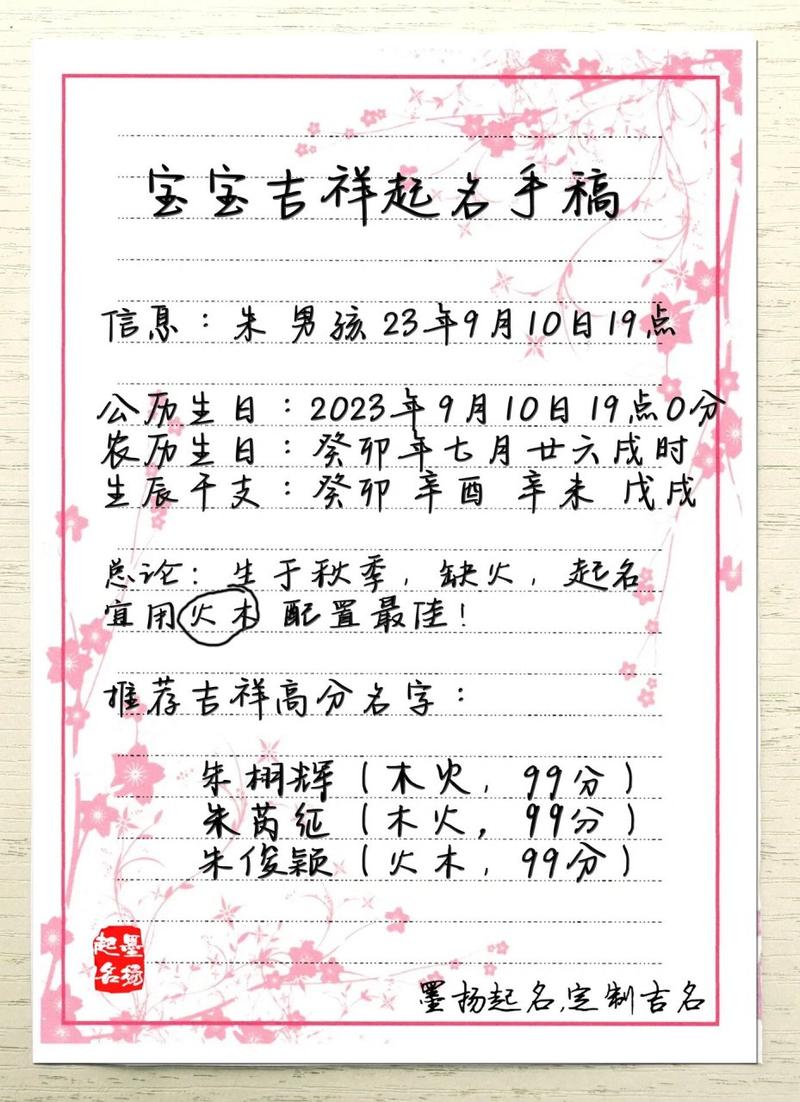 宝宝吉祥起名手稿
信息：朱 男孩 23年9月10日19点
公历生日：2023年9月10日19点0分
农历生日：癸卯年七月廿六戌时
生辰干支：癸卯 辛酉 辛未 戊戌
总论：生于秋季，缺火，起名
宜用火木 配置最佳！
推荐吉祥高分名字：
朱栩辉（木火，99分）
朱芮征（木火，99分）
朱俊颖（火木，99分）
墨扬起名
墨扬起名,定制吉名